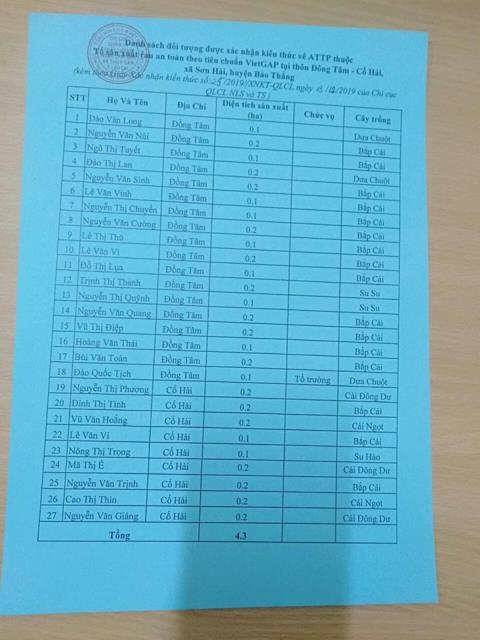 Danh sách đối tượng được xác nhận kiến thức về ATTP thuộc
Tổ sản xuất rau an toàn theo tiêu chuẩn VietGAP tại thôn Đồng Tâm - Cố Hải,
xã Sơn Hải, huyện Bảo Thắng
(kèm theo Giấy Xác nhận kiến thức số: 25/2019/XNKT-QLCL ngày 13/12/2019 của Chi cục
QLCL NLS và TS)
STT Họ Và Tên Địa Chỉ Diện tích sản xuất (ha) Chức vụ Cây trồng
1 Đào Văn Long Đồng Tâm 0.1 Dưa Chuột
2 Nguyễn Văn Núi Đồng Tâm 0.2 Bắp Cải
3 Ngô Thị Tuyết Đồng Tâm 0.1 Bắp Cải
4 Đào Thị Lan Đồng Tâm 0.2 Dưa Chuột
5 Nguyễn Văn Sinh Đồng Tâm 0.2 Bắp Cải
6 Lê Văn Vinh Đồng Tâm 0.1 Bắp Cải
7 Nguyễn Thị Chuyển Đồng Tâm 0.1 Bắp Cải
8 Nguyễn Văn Cường Đồng Tâm 0.2 Bắp Cải
9 Lê Thị Thủ Đồng Tâm 0.1 Bắp Cải
10 Lê Văn Vị Đồng Tâm 0.2 Bắp Cải
11 Đỗ Thị Lụa Đồng Tâm 0.1 Bắp Cải
12 Trịnh Thị Thanh Đồng Tâm 0.2 Su Su
13 Nguyễn Thị Quỳnh Đồng Tâm 0.1 Su Su
14 Nguyễn Văn Quang Đồng Tâm 0.2 Bắp Cải
15 Vũ Thị Điệp Đồng Tâm 0.2 Bắp Cải
16 Hoàng Văn Thái Đồng Tâm 0.1 Bắp Cải
17 Bùi Văn Toán Đồng Tâm 0.2 Bắp Cải
18 Đào Quốc Tịch Đồng Tâm 0.1 Tổ trưởng Dưa Chuột
19 Nguyễn Thị Phương Cố Hải 0.2 Cải Đông Dư
20 Đinh Thị Tình Cố Hải 0.2 Bắp Cải
21 Vũ Văn Hoằng Cố Hải 0.2 Cải Ngọt
22 Lê Văn Vị Cố Hải 0.1 Bắp Cải
23 Nông Thị Trọng Cố Hải 0.1 Su Hào
24 Mã Thị É Cố Hải 0.2 Cải Đông Dư
25 Nguyễn Văn Trịnh Cố Hải 0.2 Bắp Cải
26 Cao Thị Thìn Cố Hải 0.2 Cải Ngọt
27 Nguyễn Văn Giảng Cố Hải 0.2 Cải Đông Dư
Tổng 4.3